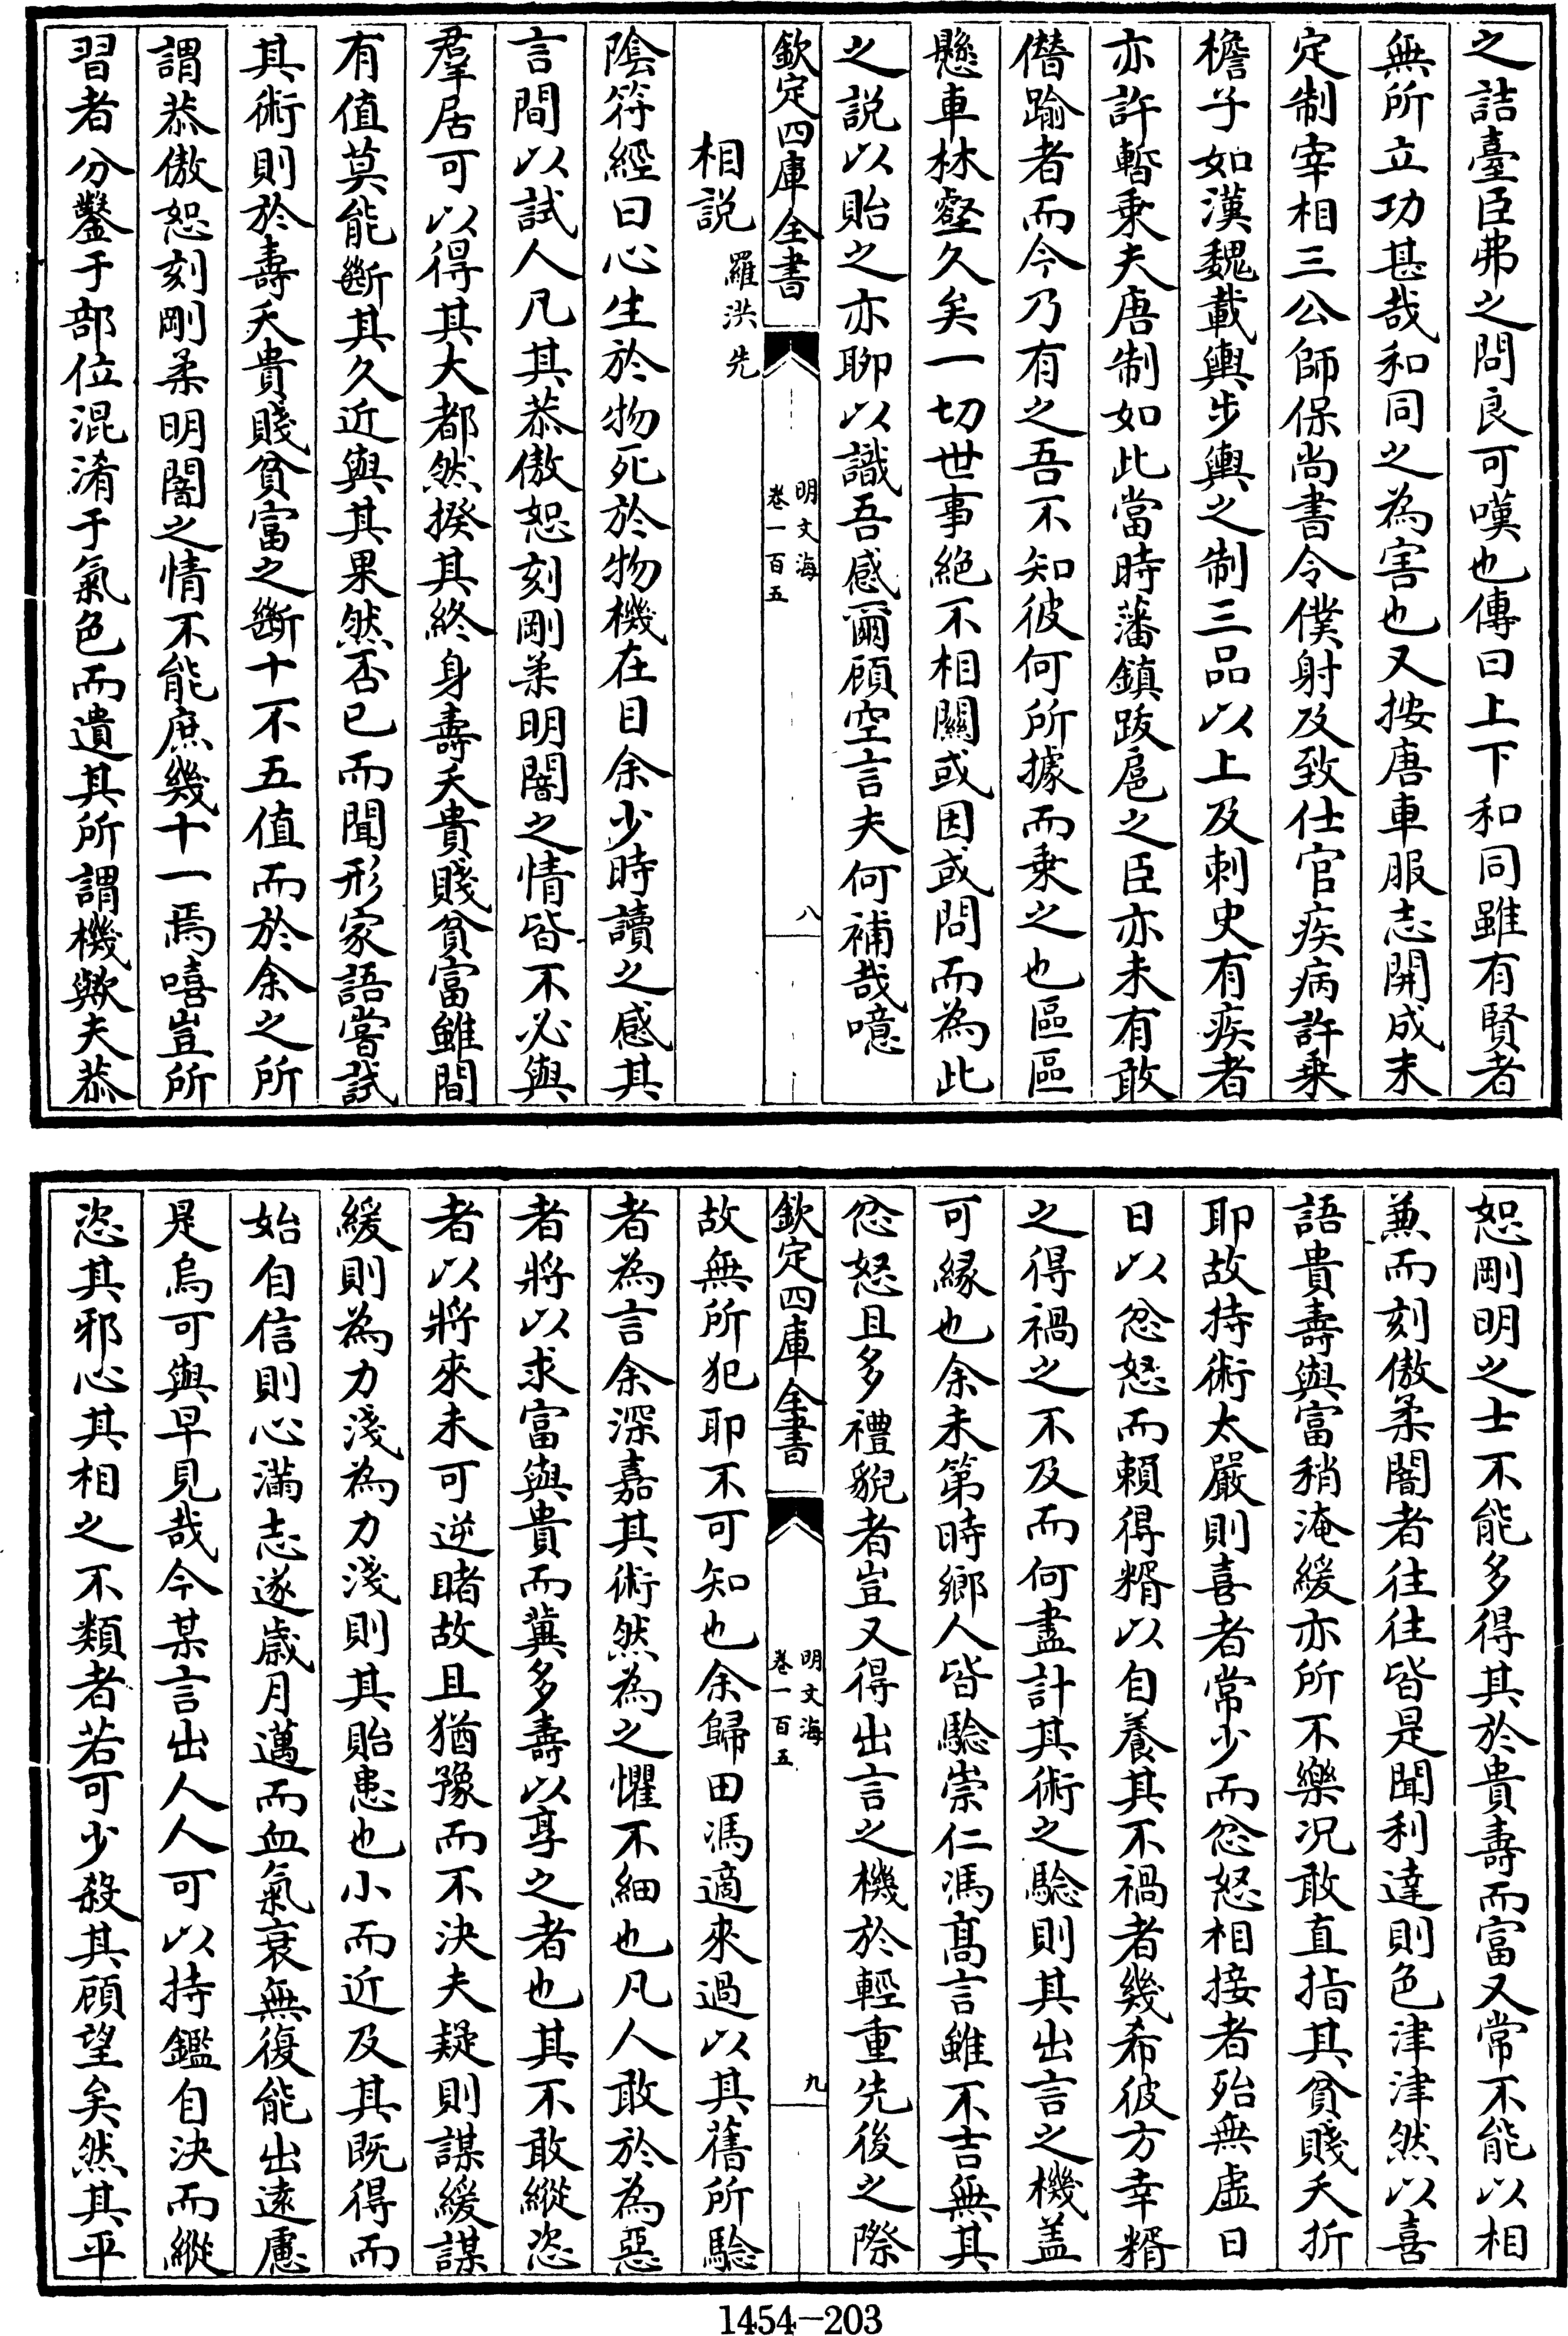 之詰臺臣弗之問良可嘆也傳曰上下和同雖有賢者
無所立功甚哉和同之為害也又按唐車服志開成末
定制宰相三公師保尚書令僕射及致仕官疾病許乗
檐子如漢魏載輿步輿之制三品以上及刺史有疾者
亦許暫乗夫唐制如此當時藩鎮跋扈之臣亦未有敢
僭踰者而今乃有之吾不知彼何所據而乗之也區區
懸車林壑久矣一切世事絶不相關或因或問而為此
之説以貽之亦聊以識吾感爾顧空言夫何補哉噫
欽定四庫全書
明文海
卷一百五
八
相説
羅洪先
隂符經曰心生於物死於物機在目余少時讀之感其
言間以試人凡其恭傲恕刻剛柔明闇之情皆不必與
羣居可以得其大都然揆其終身壽夭貴賤貧富雖間
有值莫能斷其久近與其果然否已而聞形家語嘗試
其術則於壽夭貴賤貧富之斷十不五值而於余之所
謂恭傲恕刻剛柔明闇之情不能庶幾十一焉嘻豈所
習者分鑿于部位混淆于氣色而遺其所謂機歟夫恭
恕剛明之士不能多得其於貴壽而富又常不能以相
兼而刻傲柔闇者往往皆是聞利達則色津津然以喜
語貴壽與富稍淹緩亦所不樂况敢直指其貧賤夭折
耶故持術太嚴則喜者常少而忿怒相接者殆無虚日
日以忿怒而賴得糈以自養其不禍者幾希彼方幸糈
之得禍之不及而何盡計其術之驗則其出言之機盖
可縁也余未第時鄉人皆驗崇仁馮髙言雖不吉無其
忿怒且多禮貌者豈又得出言之機於輕重先後之際
欽定四庫全書
明文海
卷一百五
九
故無所犯耶不可知也余歸田馮適來過以其舊所驗
者為言余深嘉其術然為之懼不細也凡人敢於為惡
者將以求富與貴而冀多壽以享之者也其不敢縱恣
者以將來未可逆睹故且猶豫而不決夫疑則謀緩謀
緩則為力淺為力淺則其貽患也小而近及其既得而
始自信則心滿志遂歲月邁而血氣衰無復能出遠慮
是烏可與早見哉今某言出人人可以持鑑自決而縱
恣其邪心其相之不類者若可少殺其顧望矣然其平
1454-203